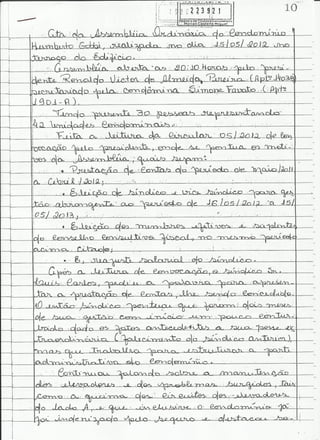 223921
10
Ata da Assembléia Ordinária do Condomínio
Humberto Gobbi, realizada no dia 15/05/2012, no
Terraço do Edifício.
Assembléia aberta às 20:10 Horas pelo presi-
dente Ronaldo Victor de Almeida Pereira (Aptº
secretariado pela condômina Simone Favato (Aptº
1901-A).
Tendo presente 30 pessoas representando
42 unidades Condominiais.
Feita a leitura da Circular 05/2012 de con-
vocação pelo presidente, onde se pontua os moti-
vos da Assembléia, quais sejam:
• Prestação de Contas do período de maio/2011
a Abril/2012;
• Eleição de síndico e vice síndico para ges
tão abrangente ao período de 15/05/2012 a 15/
05/2013;
• Eleição dos membros efetivos e suplentes
do Conselho Consultivo fiscal, no mesmo período
acima citado;
• E, reajuste salarial do síndico.
Após a leitura de convocação, o síndico Sr.
Luis Carlos, pediu a palavra para apresen-
tar a prestação de contas, lhe sendo concedido.
O então síndico pontua que foram dois meses
de sua gestão com início um pouco contur-
bado dado os fatos antecedentes a sua posse ex
traordinária (falecimento do síndico anterior)
mas que trabalhou para estruturar a parte
administrativa do condomínio.
Continuou falando sobre a manutenção
dos elevadores e dos problemas surgidos, tais
como a queima dos circuitos dos elevadores
do lado A, e que inclusive o condomínio já
foi indenizado pelo seguro e